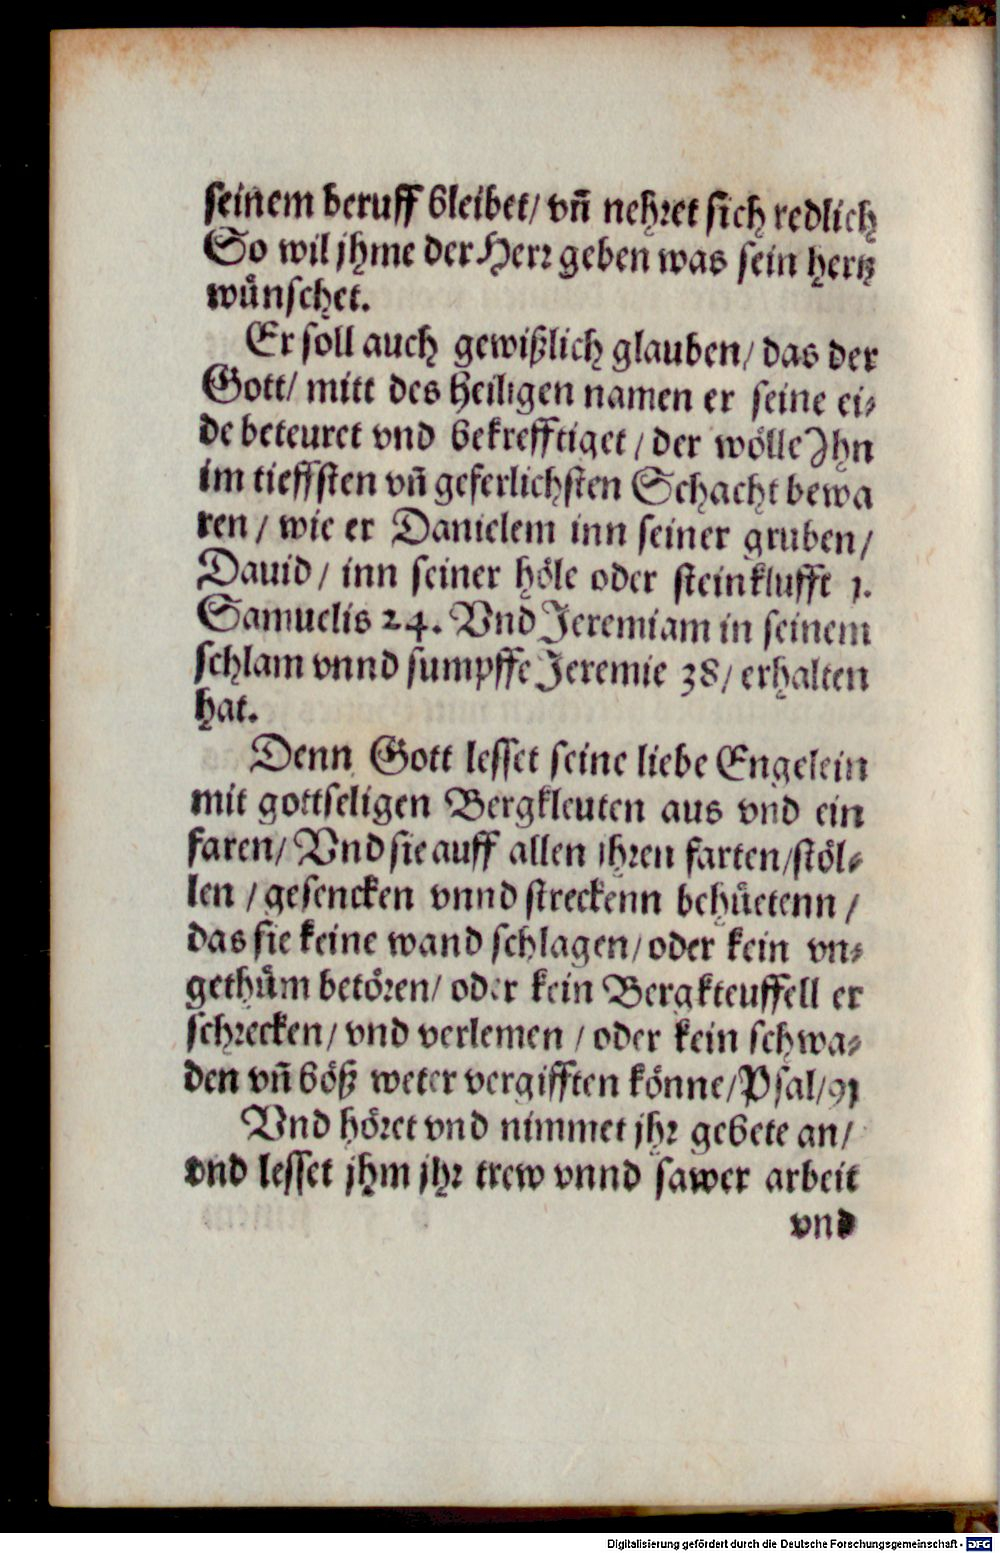 seinem beruff bleibet/ vñ nehret sich redlich
So wil jhme der Herr geben was sein hertz
wünschet.
Er soll auch gewißlich glauben/ das der
Gott/ mitt des heiligen namen er seine ei⸗
de beteuret vnd bekrefftiget / der wölle Jhn
im tieffsten vñ geferlichsten Schacht bewa
ren / wie er Danielem inn seiner gruben/
Dauid/ inn seiner höle oder steinklufft 1.
Samuelis 24. Vnd Jeremiam in seinem
schlam vnnd sumpffe Jeremie 38/ erhalten
hat.
Denn Gott lesset seine liebe Engelein
mit gottseligen Bergkleuten aus vnd ein
faren/ Vnd sie auff allen jhren farten/stöl⸗
len / gesencken vnnd streckenn behüetenn /
das sie keine wand schlagen/ oder kein vn⸗
gethüm betören/ oder kein Bergkteuffell er
schrecken/ vnd verlemen / oder kein schwa⸗
den vñ böß weter vergifften könne/Psal/91
Vnd höret vnd nimmet jhr gebete an/
vnd lesset jhm jhr trew vnnd sawer arbeit
vnd
Digitalisierung gefördert durch die Deutsche Forschungsgemeinschaft - DFG